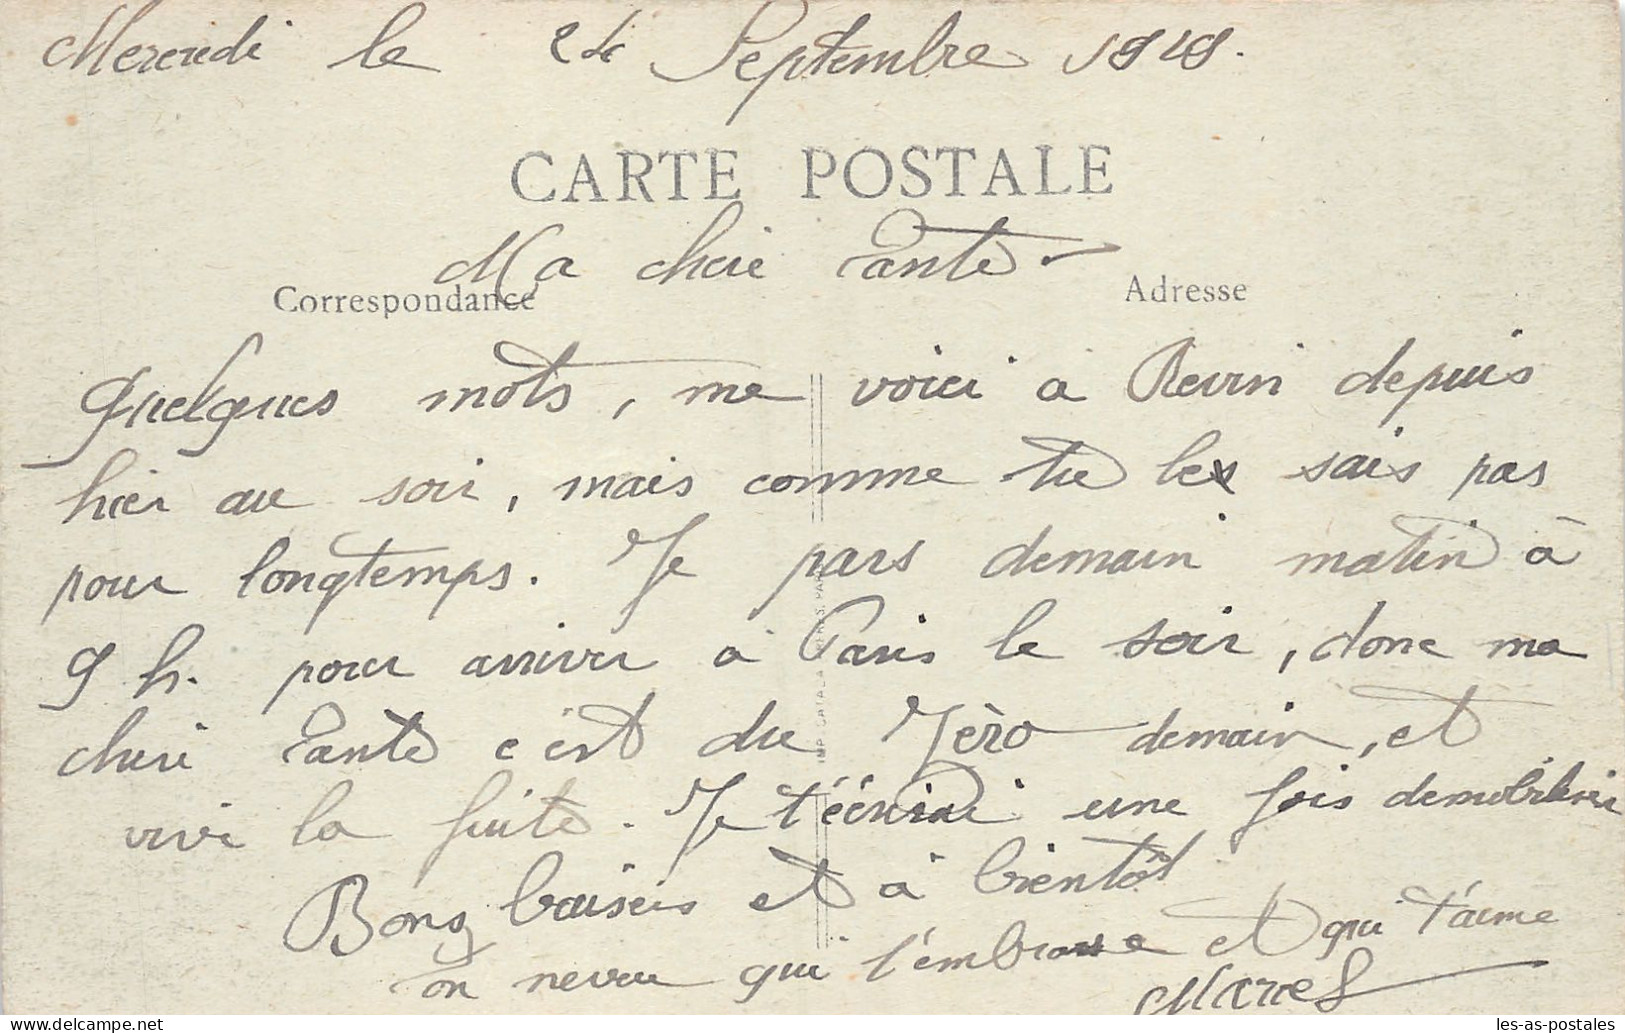 Mercredi le 24 Septembre 1919.
CARTE POSTALE
Ma cheri Tante
Correspondance
Adresse
Quelques mots, me voici a Revin depuis
hier au soir, mais comme tu le sais pas
pour longtemps. Je pars demain matin à
9 h. pour arriver a Paris le soir, donc ma
cheri Tante c'est du Zèro demain, et
vive la fuite. Je t'écrirai une fois demobiliser
Bons baisers et à bientôt
Ton neveu qui t'embrasse et qui t'aime
Marcel
IMP. CATALA FRERES, PARIS
les-as-postales